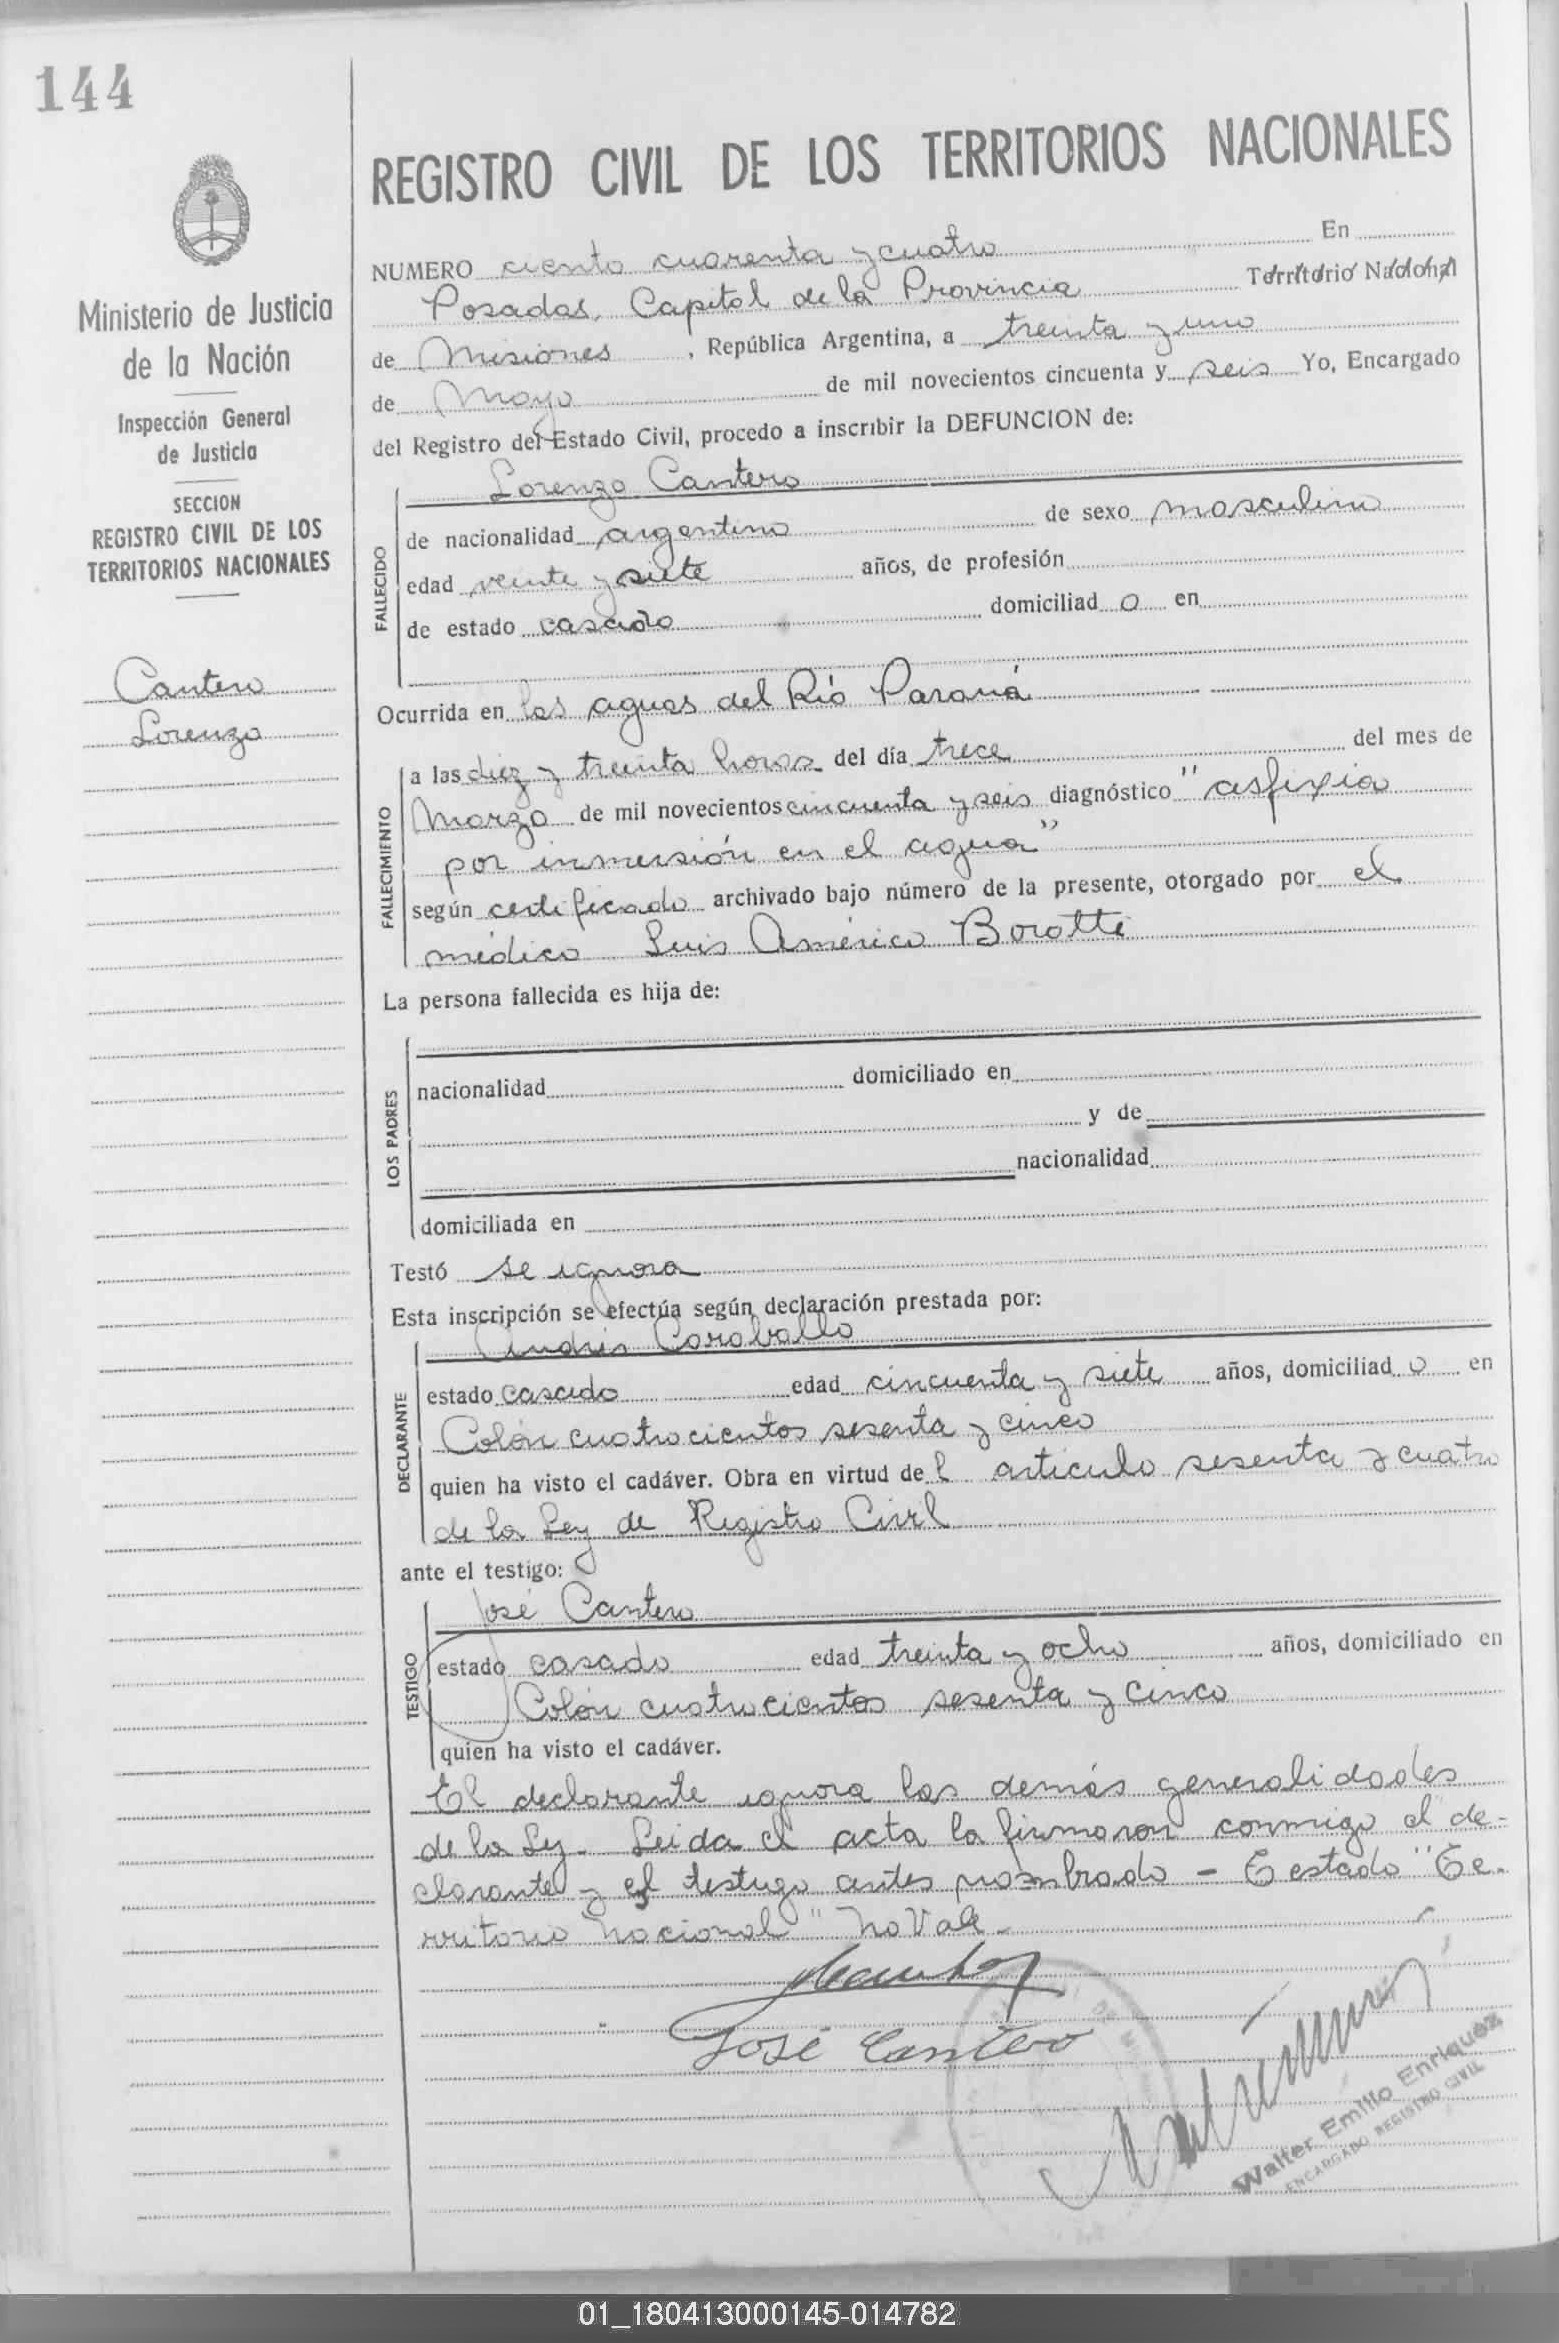 144
Ministerio de Justicia
de la Nación
Inspección General
de Justicia
SECCION
REGISTRO CIVIL DE LOS
TERRITORIOS NACIONALES
Cantero
Lorenzo
REGISTRO CIVIL DE LOS TERRITORIOS NACIONALES
NUMERO ciento cuarenta y cuatro En
Posadas, Capital de la Provincia Territorio Nacional
de Misiones , República Argentina, a treinta y uno
de Mayo de mil novecientos cincuenta y seis Yo, Encargado
del Registro del Estado Civil, procedo a inscribir la DEFUNCION de:
Lorenzo Cantero
FALLECIDO
de nacionalidad argentino de sexo masculino
edad veinte y siete años, de profesión
de estado casado domiciliad o en
Ocurrida en las aguas del Río Paraná
FALLECIMIENTO
a las diez y treinta horas del día trece del mes de
Marzo de mil novecientos cincuenta y seis diagnóstico "asfixia
por inmersión en el agua"
según certificado archivado bajo número de la presente, otorgado por el
médico Luis Américo Borotti
La persona fallecida es hija de:
LOS PADRES
nacionalidad domiciliado en
y de
nacionalidad
domiciliada en
Testó se ignora
Esta inscripción se efectúa según declaración prestada por:
Andrés Caraballo
DECLARANTE
estado casado edad cincuenta y siete años, domiciliad o en
Colón cuatrocientos sesenta y cinco
quien ha visto el cadáver. Obra en virtud de l artículo sesenta y cuatro
de la Ley de Registro Civil
ante el testigo:
José Cantero
TESTIGO
estado casado edad treinta y ocho años, domiciliado en
Colón cuatrocientos sesenta y cinco
quien ha visto el cadáver.
El declarante ignora las demás generalidades
de la Ley. Leida el acta la firmaron conmigo el de-
clarante y el testigo antes nombrado - Testado "Te-
rritorio Nacional" No Vale.
José Cantero
Walter Emilio Enriquez
ENCARGADO REGISTRO CIVIL
01_180413000145-014782